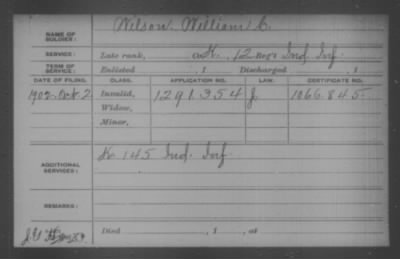 NAME OF SOLDIER: Wilson William C.
SERVICE: Late rank, Co. K, 12 Reg't Ind. Inf.
TERM OF SERVICE: Enlisted , 1 Discharged , 1
DATE OF FILING. CLASS. APPLICATION NO. LAW. CERTIFICATE NO.
1902. Oct 2 Invalid, 1291.354 J 1066.845
Widow,
Minor,
ADDITIONAL SERVICES: K 145 Ind. Inf.
REMARKS:
Died , 1 , at